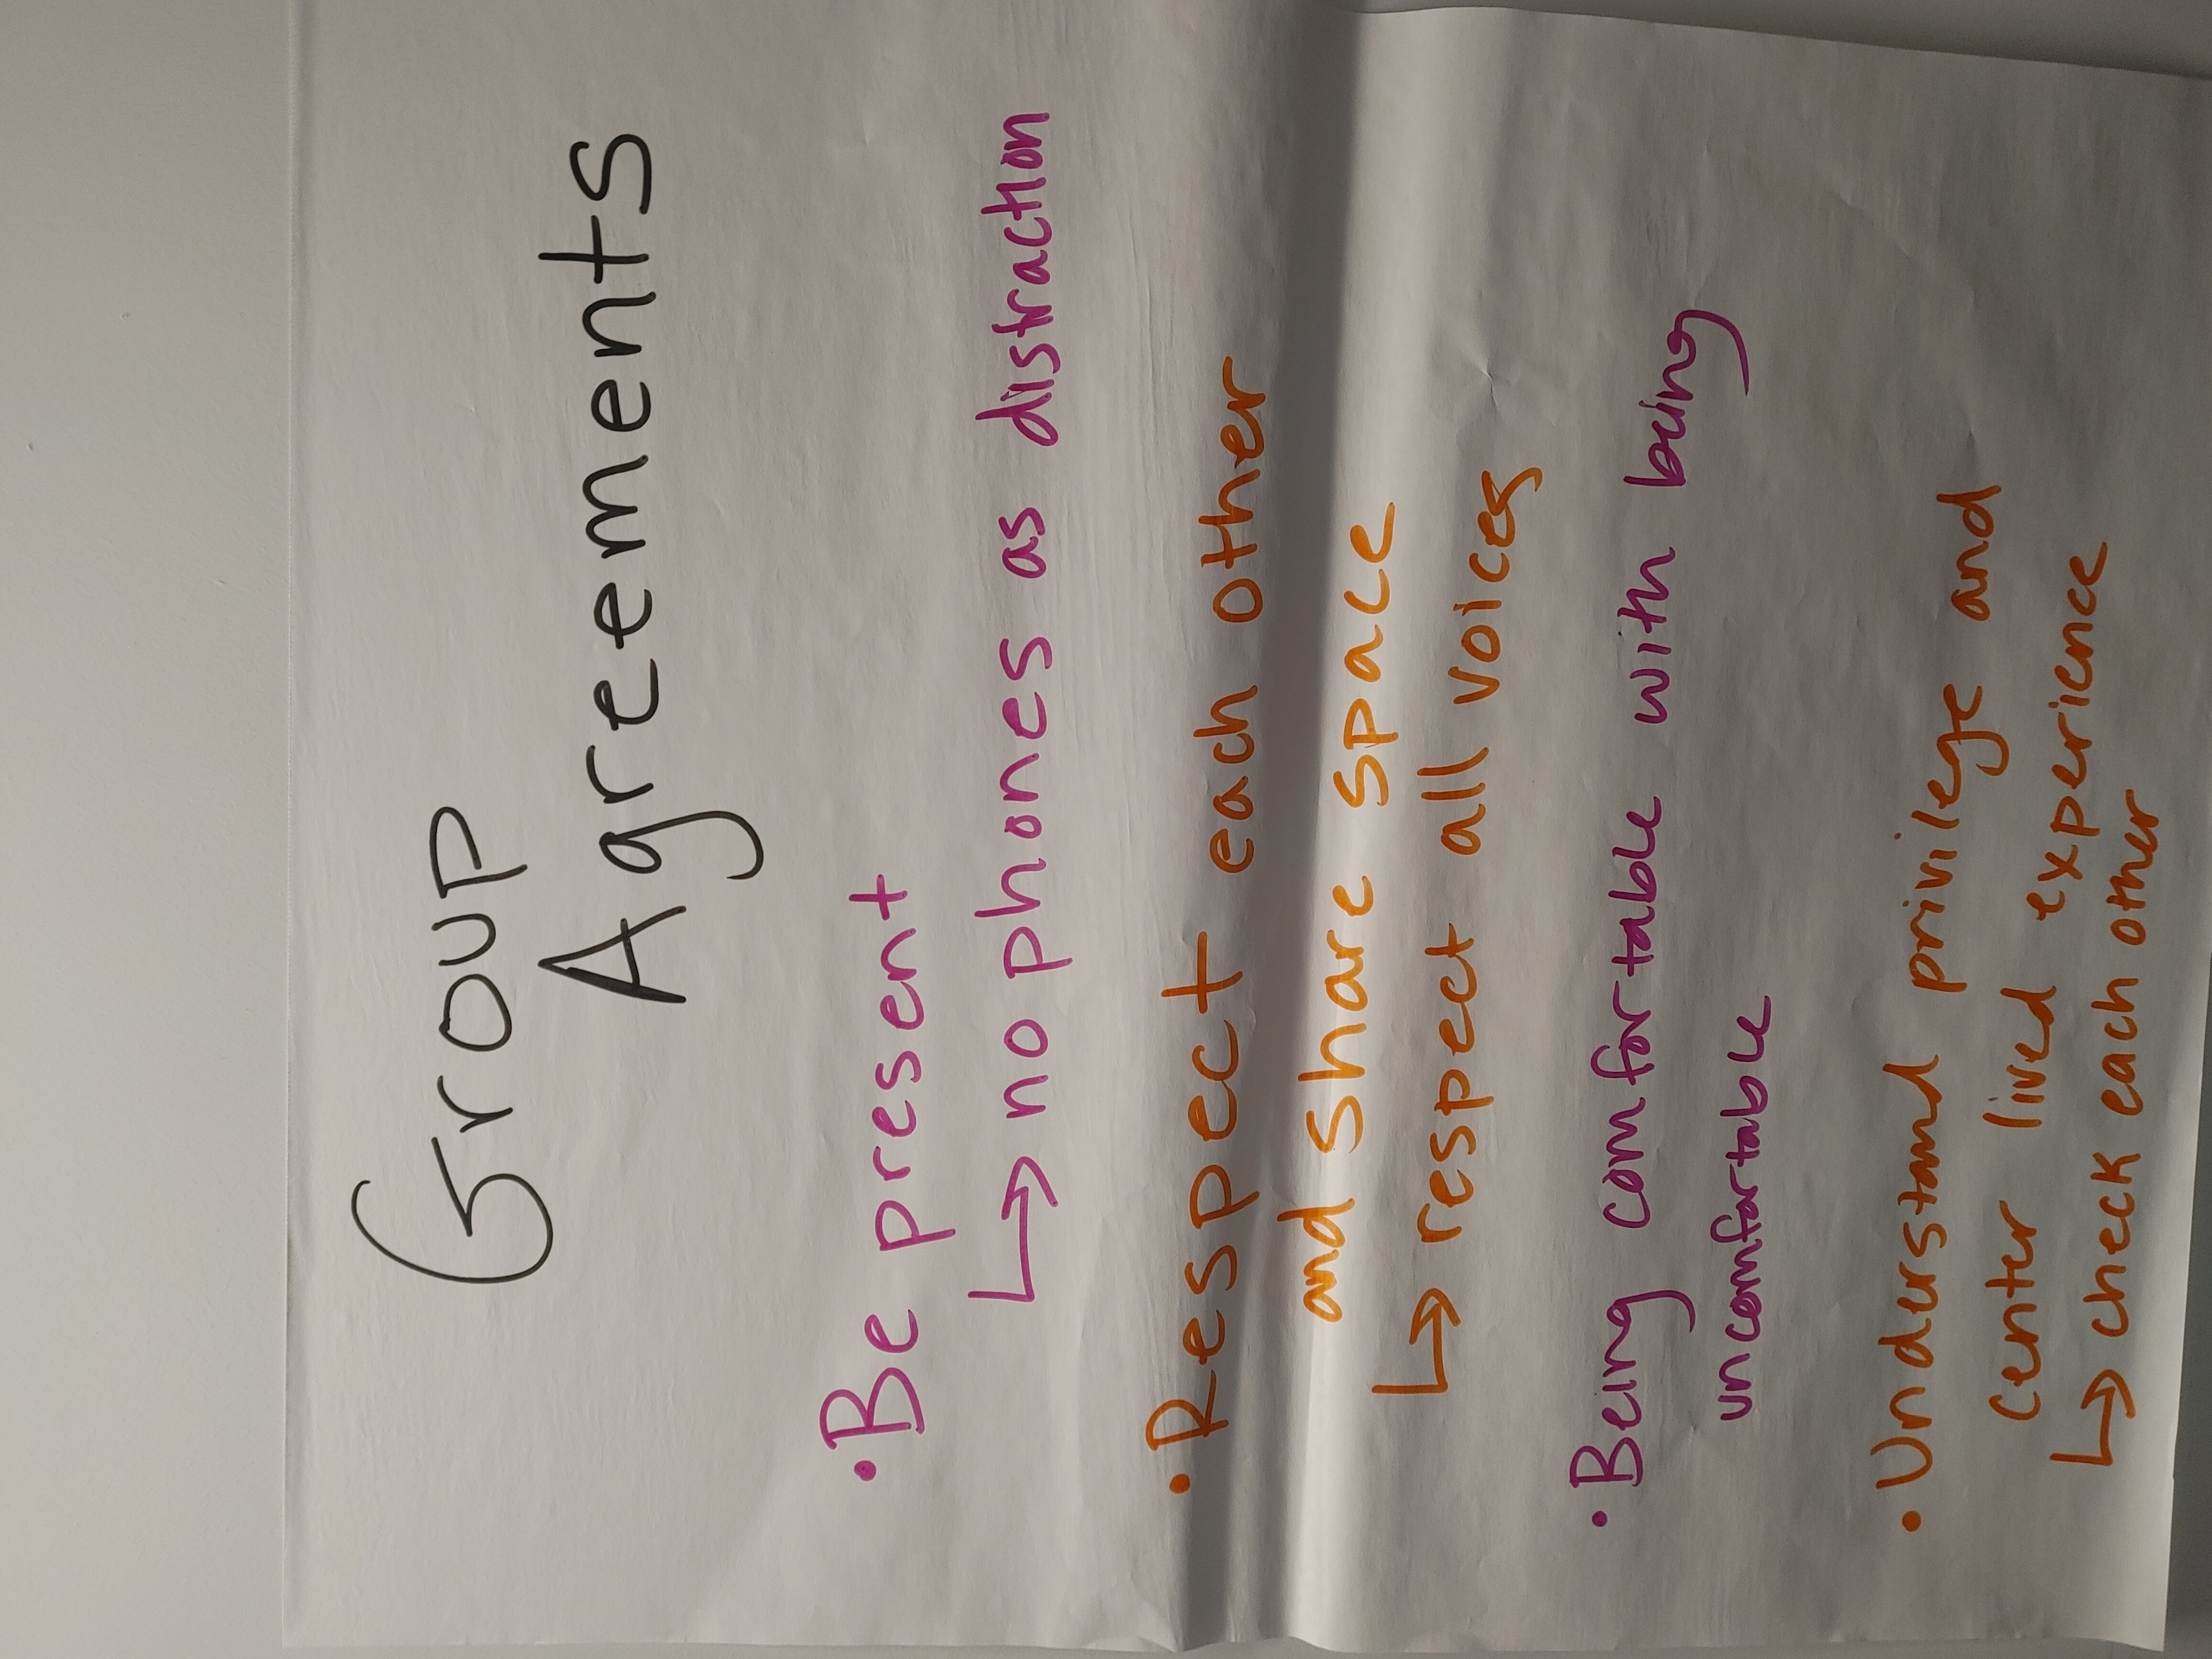 Group
Agreements
• Be present
↳ no phones as distraction
• Respect each other
and share space
↳ respect all voices
• Being comfortable with being
uncomfortable
• Understand privilege and
center lived experience
↳ check each other